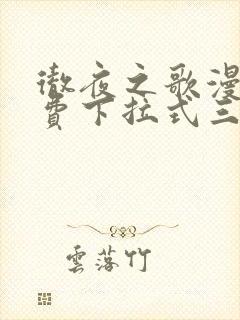 徹夜之歌漫
費下拉式三
雲落竹